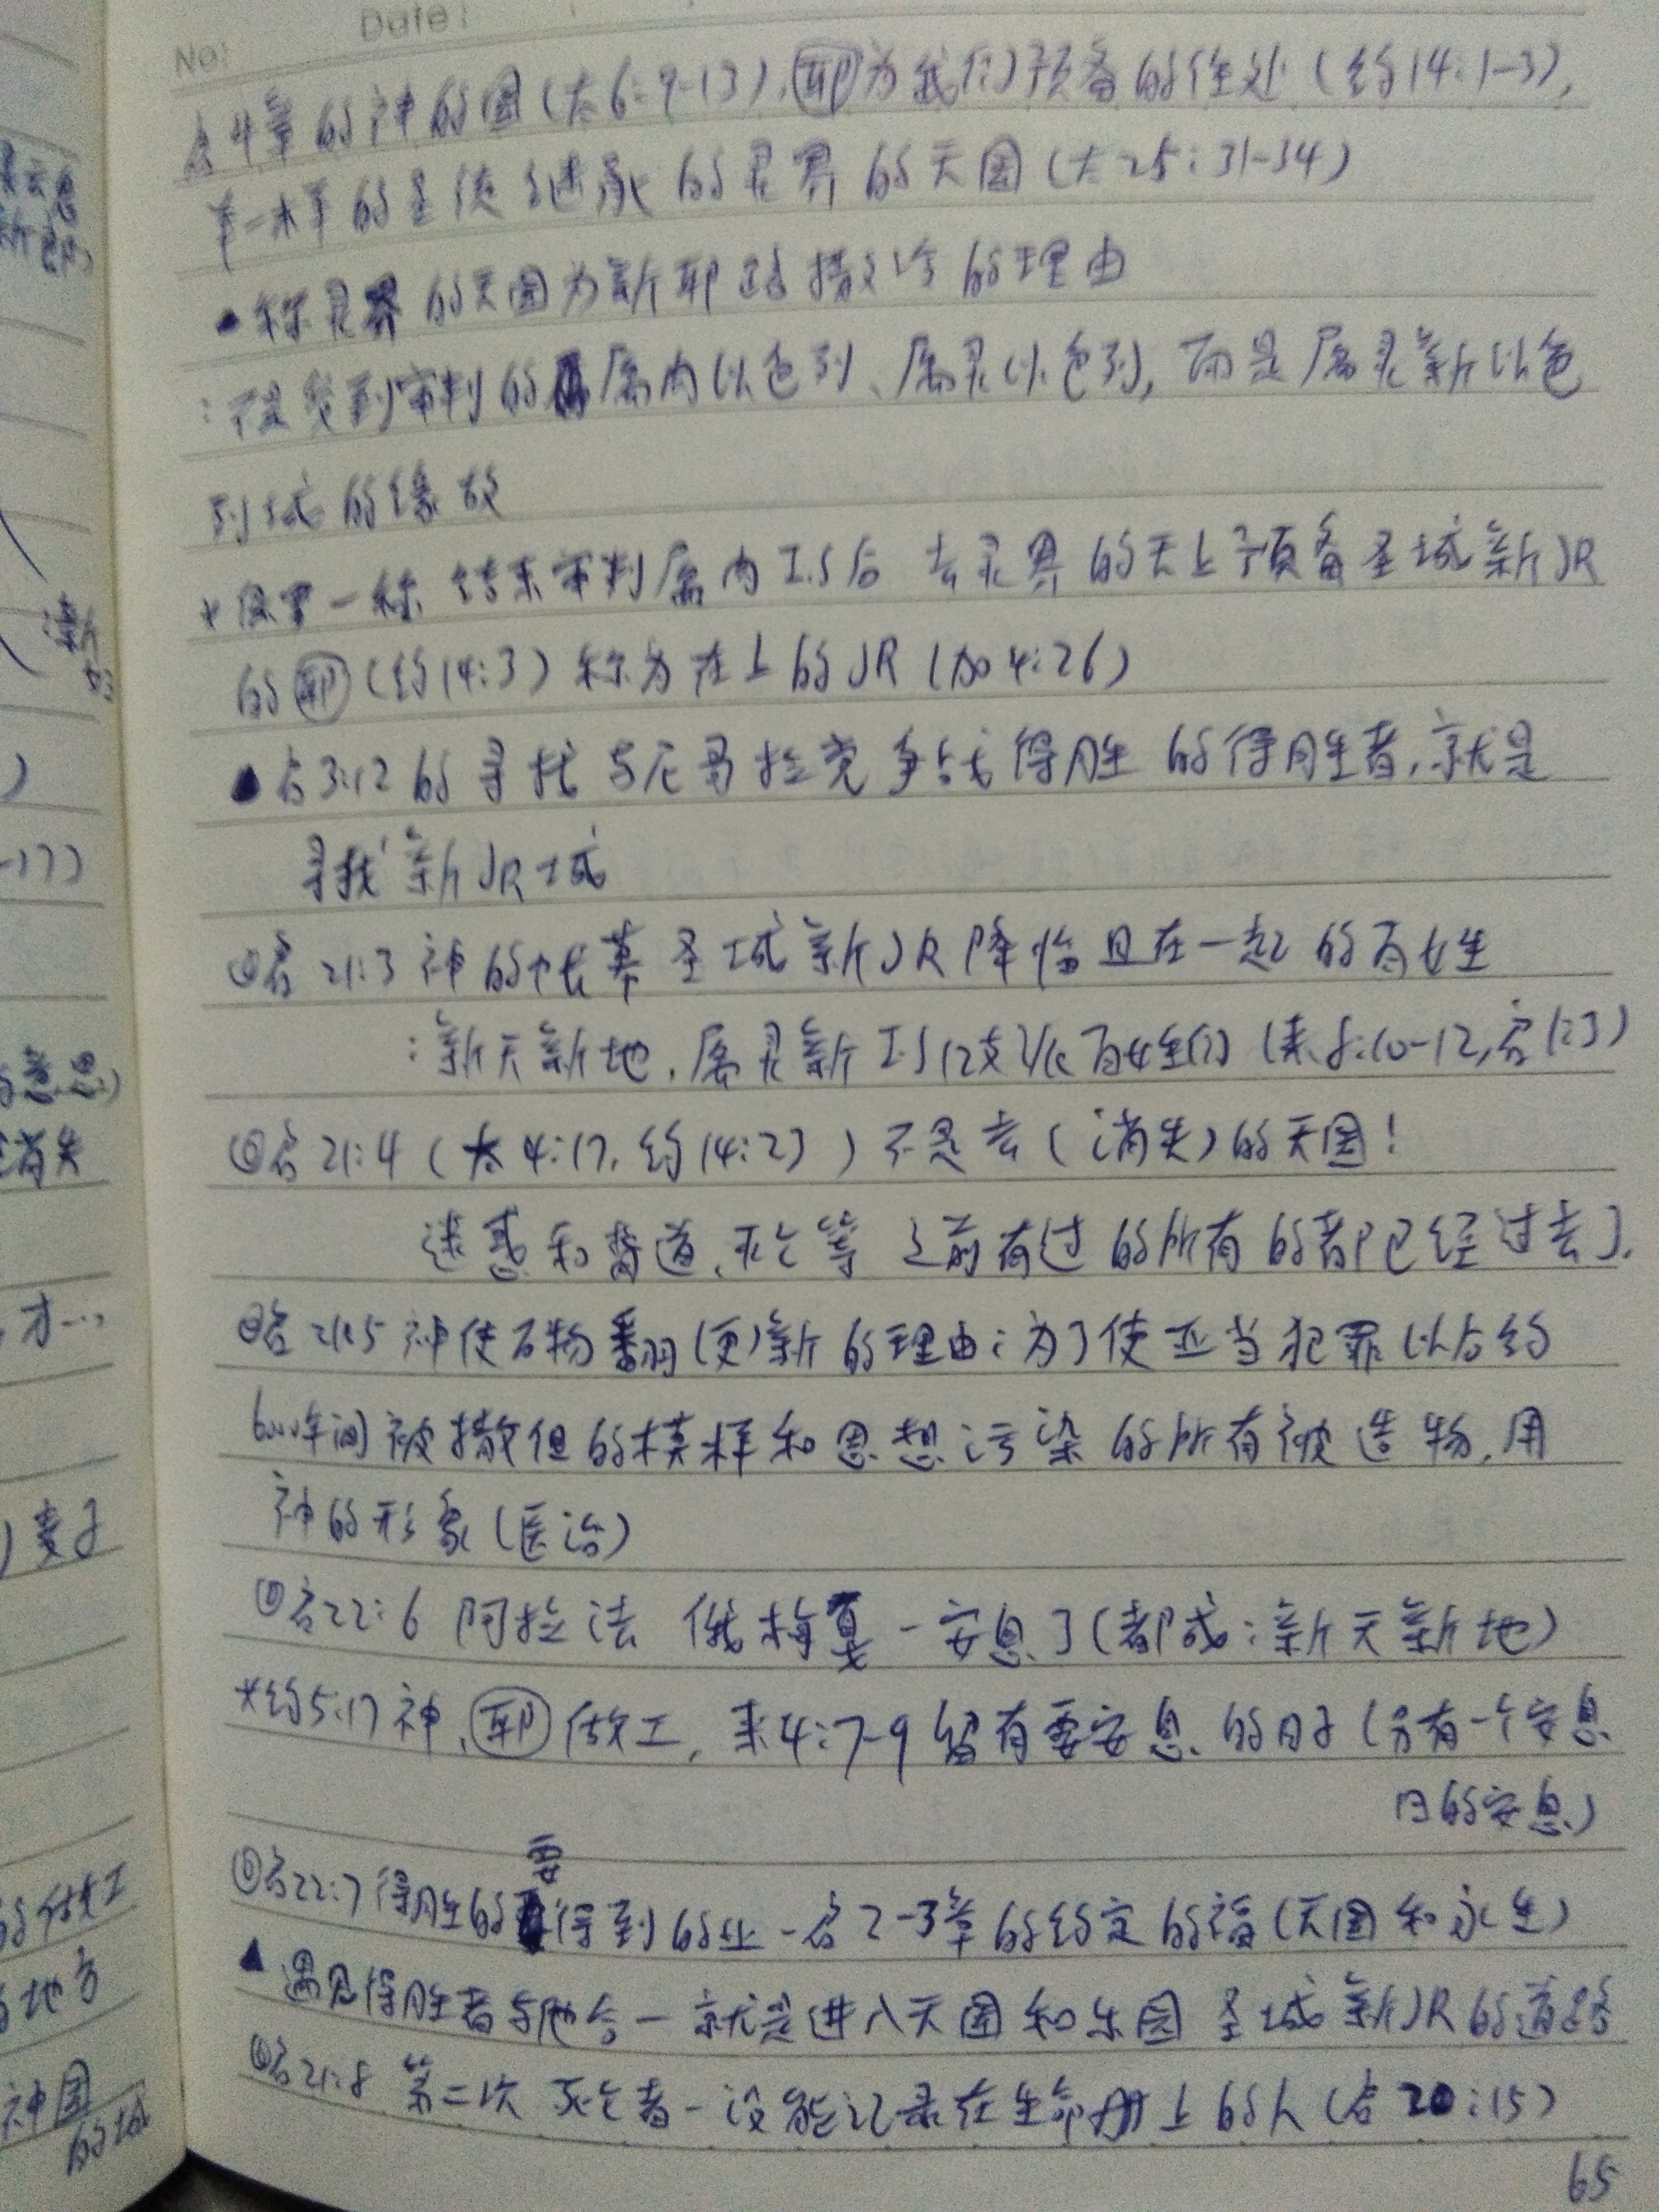 No:
Date:
启4章的神的国(太6:9-13),耶为我们预备的住处(约14:1-3),
的圣徒继承的灵界的天国(太25:31-34)
称灵界的天国为新耶路撒冷的理由
:不是受到审判的属肉以色列、属灵以色列,而是属灵新以色
列城的缘故
* 结束审判属肉I.S后 去灵界的天上预备圣城新JR
的耶(约14:3)称为在上的JR(加4:26)
启3:12的寻找与尼哥拉党争战得胜的得胜者,就是
寻找新JR城
启21:3 神的帐幕圣城新JR降临且在一起的百姓
:新天新地,属灵新I.S12支派百姓们(来8:10-12,启1:3)
启21:4(太4:17,约14:23)不是去(消失)的天国!
迷惑和背道,死亡等 之前有过的所有的都已经过去了.
启21:5 神使万物翻(更)新的理由:为了使亚当犯罪以后约
6000年间被撒但的模样和思想污染的所有被造物,用
神的形象(医治)
启22:6 阿拉法 俄梅戛-安息了(都成:新天新地)
*约5:17神,耶做工,来4:7-9留有要安息的日子(另有一个安息
日的安息)
要
启22:7得胜的得到的业-启2-3章的约定的福(天国和永生)
▲遇见得胜者与他合一就是进入天国和乐园 圣城新JR的道路
启21:8 第二次死亡者-没能记录在生命册上的人(启20:15)
65
意思)
消失
才…
麦子
的做工
地方
神国
的城